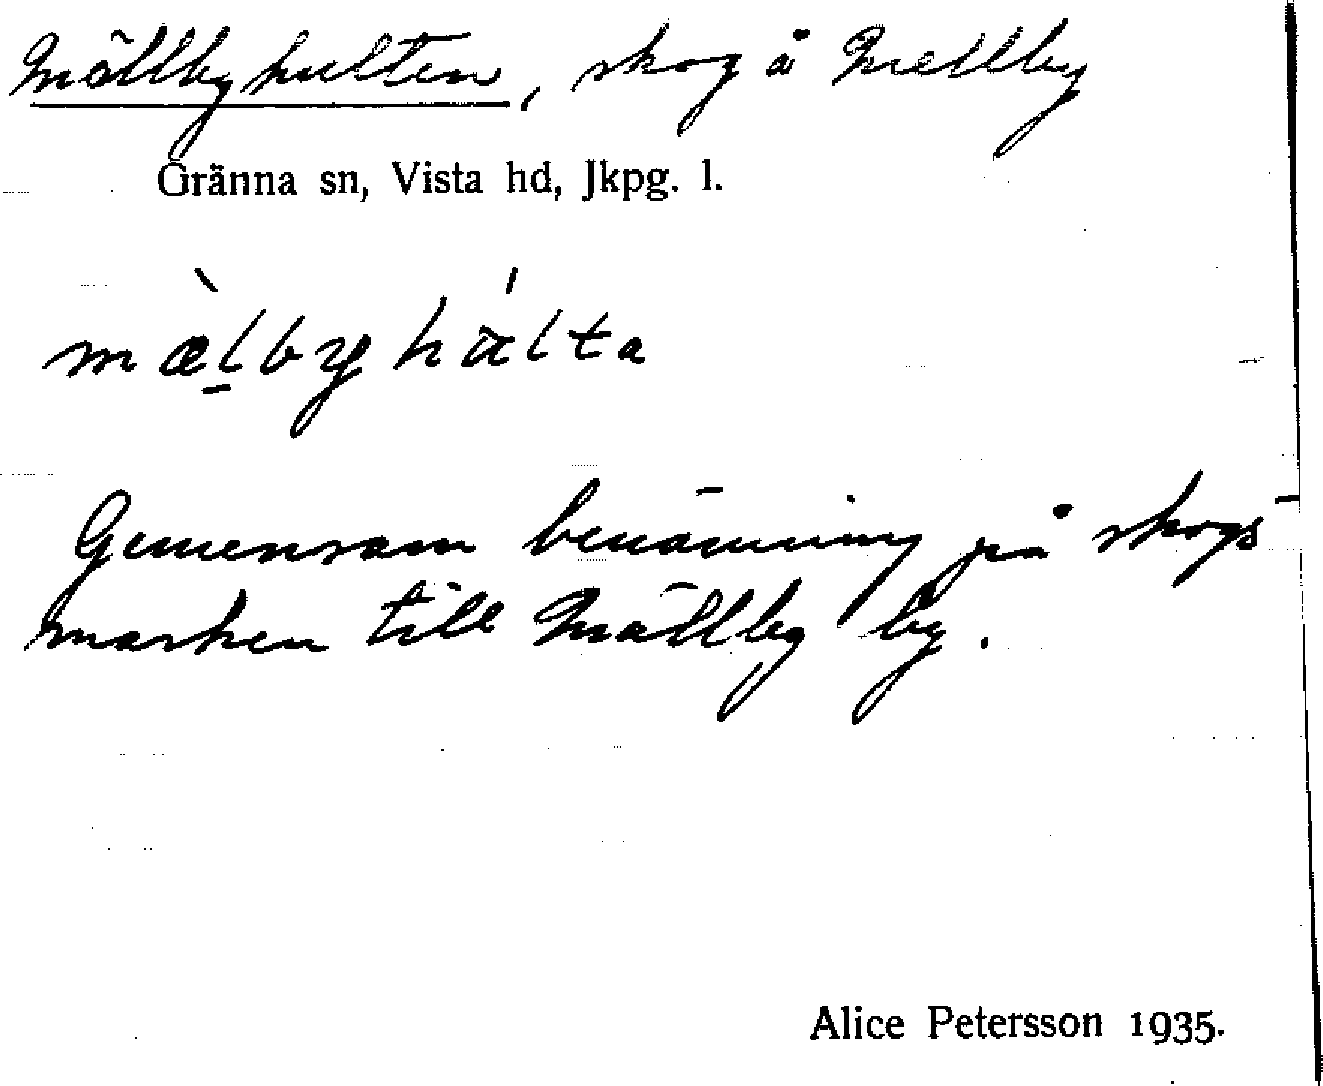 Mällbyhulten, skog å Mellby
Gränna sn, Vista hd, Jkpg. l.
mæ̀lbyhált​a
Gemensam benämning på skogs-
marken till Mällby by.
Alice Petersson 1935.